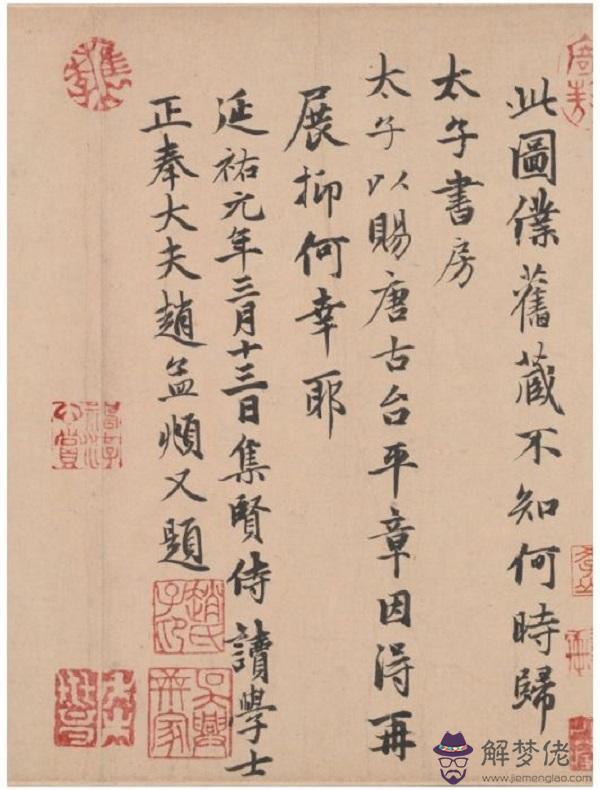 此圖僕舊藏不知何時歸
太子書房
太子以賜唐古台平章因得再
展抑何幸耶
延祐元年三月十三日集賢侍讀學士
正奉大夫趙孟頫又題
趙氏子印
吳興世家
解梦佬
www.jiemenglao.com